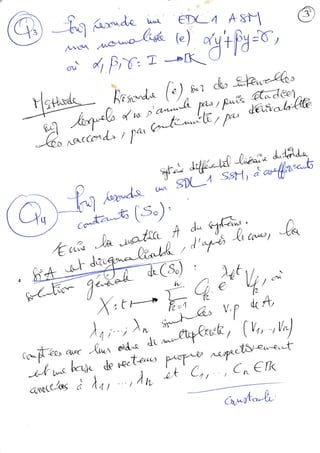 3
Q3 Pour résoudre une EDL 1 ASM
non normalisée (e) αy'+βy=γ,
où α, β, γ : I → K
Méthode Résoudre (e) sur des intervalles
sur lesquels α ne s'annule pas, puis étudier
les raccords, par continuité, par dérivabilité
système différentiel linéaire d'ordre
Q4 Pour résoudre un SDL 1 SSM, à coefficients
constants (S0) :
Ecrire la matrice A du système.
. Si A est diagonalisable, d'après le cours, la
solution générale de (S0) :
X : t ↦ Σ_{k=1}^{n} C_k e^{λ_k t} V_k, où
λ1, ..., λn sont les v.p de A,
comptées avec leur ordre de multiplicité, (V1, ..., Vn)
est une base de vecteurs propres respectivement
associés à λ1, ..., λn et C1, ..., Cn ∈ K
constante